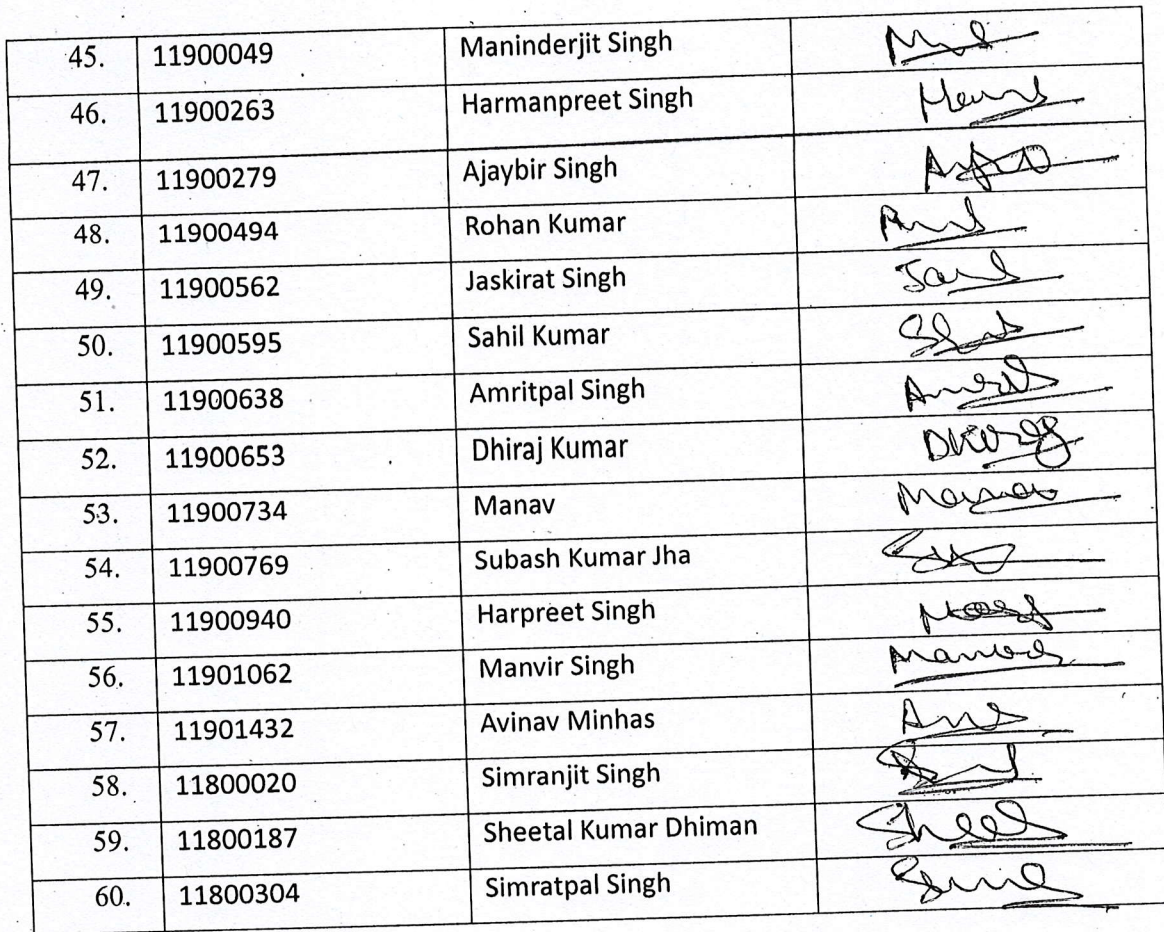 45. 11900049 Maninderjit Singh
46. 11900263 Harmanpreet Singh
47. 11900279 Ajaybir Singh
48. 11900494 Rohan Kumar
49. 11900562 Jaskirat Singh
50. 11900595 Sahil Kumar
51. 11900638 Amritpal Singh
52. 11900653 Dhiraj Kumar
53. 11900734 Manav
54. 11900769 Subash Kumar Jha
55. 11900940 Harpreet Singh
56. 11901062 Manvir Singh
57. 11901432 Avinav Minhas
58. 11800020 Simranjit Singh
59. 11800187 Sheetal Kumar Dhiman
60. 11800304 Simratpal Singh